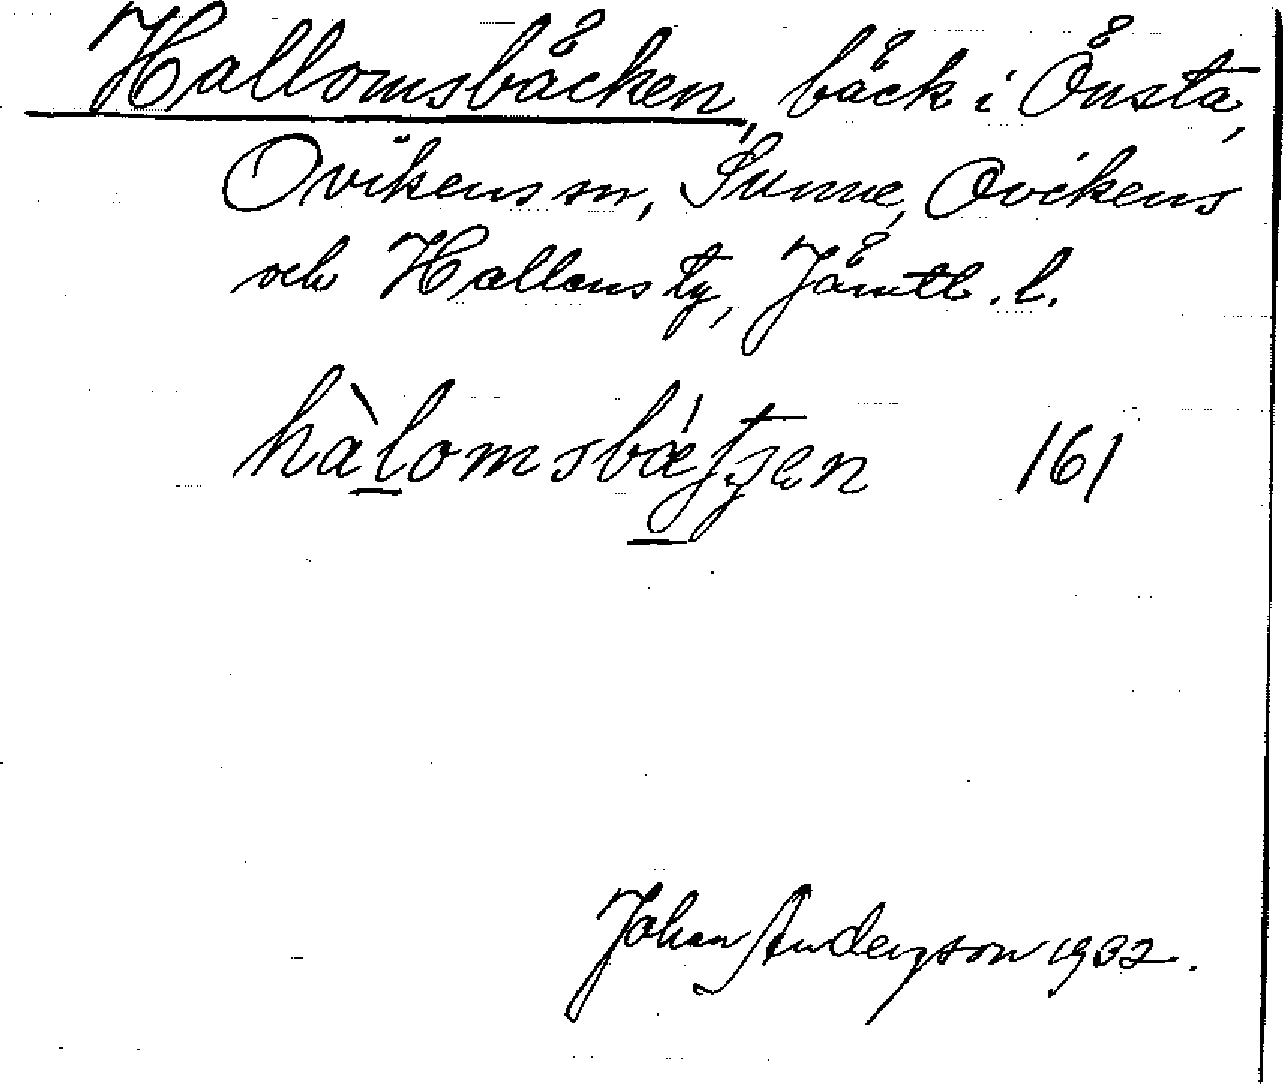 Hallomsbäcken, bäck i Önsta,
Ovikens sn, Sunne, Ovikens
och Hallens tg, Jämtl. l.
hàlomsbǽtʃen 161
Johan Anderzson 1932.